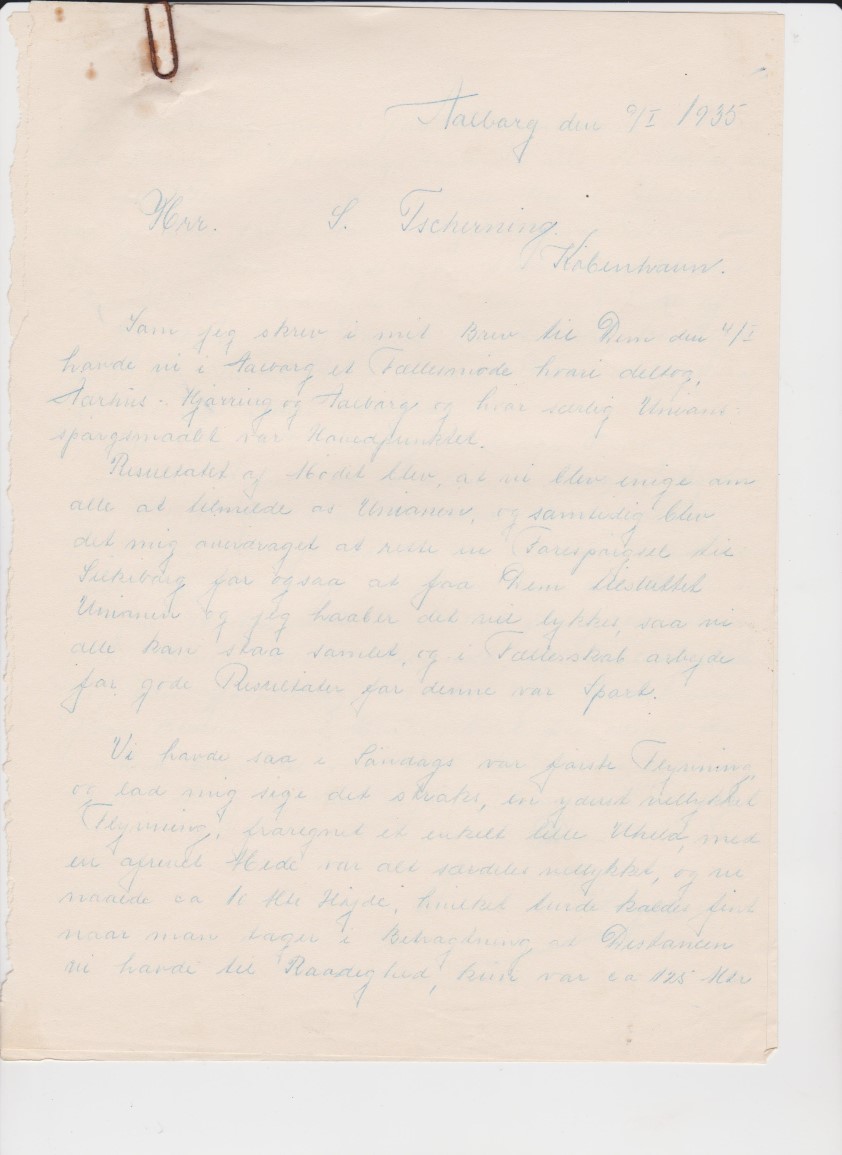 Aalborg den 9/I 1935
Hrr. S. Tscherning.
København.
Som jeg skrev i mit Brev til Dem den 4/I
havde vi i Aalborg et Fællesmøde hvori deltog,
Aarhus - Hjørring og Aalborg og hvor særlig Unions-
spørgsmaalet var Hovedpunktet.
Resultatet af Mødet blev, at vi blev enige om
alle at tilmelde os Unionen, og samtidig blev
det mig overdraget at rette en Forespørgsel til
Silkeborg for ogsaa at faa Dem tilsluttet
Unionen og jeg haaber det vil lykkes, saa vi
alle kan staa samlet, og i Fællesskab arbejde
for gode Resultater for denne vor Sport.
Vi havde saa i Søndags vor første Flyvning,
og lad mig sige det straks, en yderst vellykket
Flyvning, fraregnet et enkelt lille Uheld, med
en afrevet Mede var alt særdeles vellykket, og vi
naaede ca 10 Mtr Højde, hvilket turde kaldes fint
naar man tager i Betragtning at Distancen
vi havde til Raadighed, kun var ca 125 Mtr